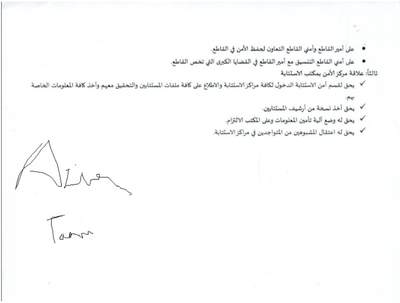 • على أمير القاطع وأمني القاطع التعاون لحفظ الأمن في القاطع.
• على أمني القاطع التنسيق مع أمير القاطع في القضايا الكبرى التي تخص القاطع.
ثالثاً: علاقة مركز الأمن بمكتب الاستتابة
✓ يحق لقسم أمن الاستتابة الدخول لكافة مراكز الاستتابة والاطلاع على كافة ملفات المستتابين والتحقيق معهم وأخذ كافة المعلومات الخاصة
بهم.
✓ يحق أخذ نسخة من أرشيف المستتابين.
✓ يحق له وضع آلية تأمين المعلومات وعلى المكتب الالتزام.
✓ يحق له اعتقال المشبوهين من المتواجدين في مراكز الاستتابة.